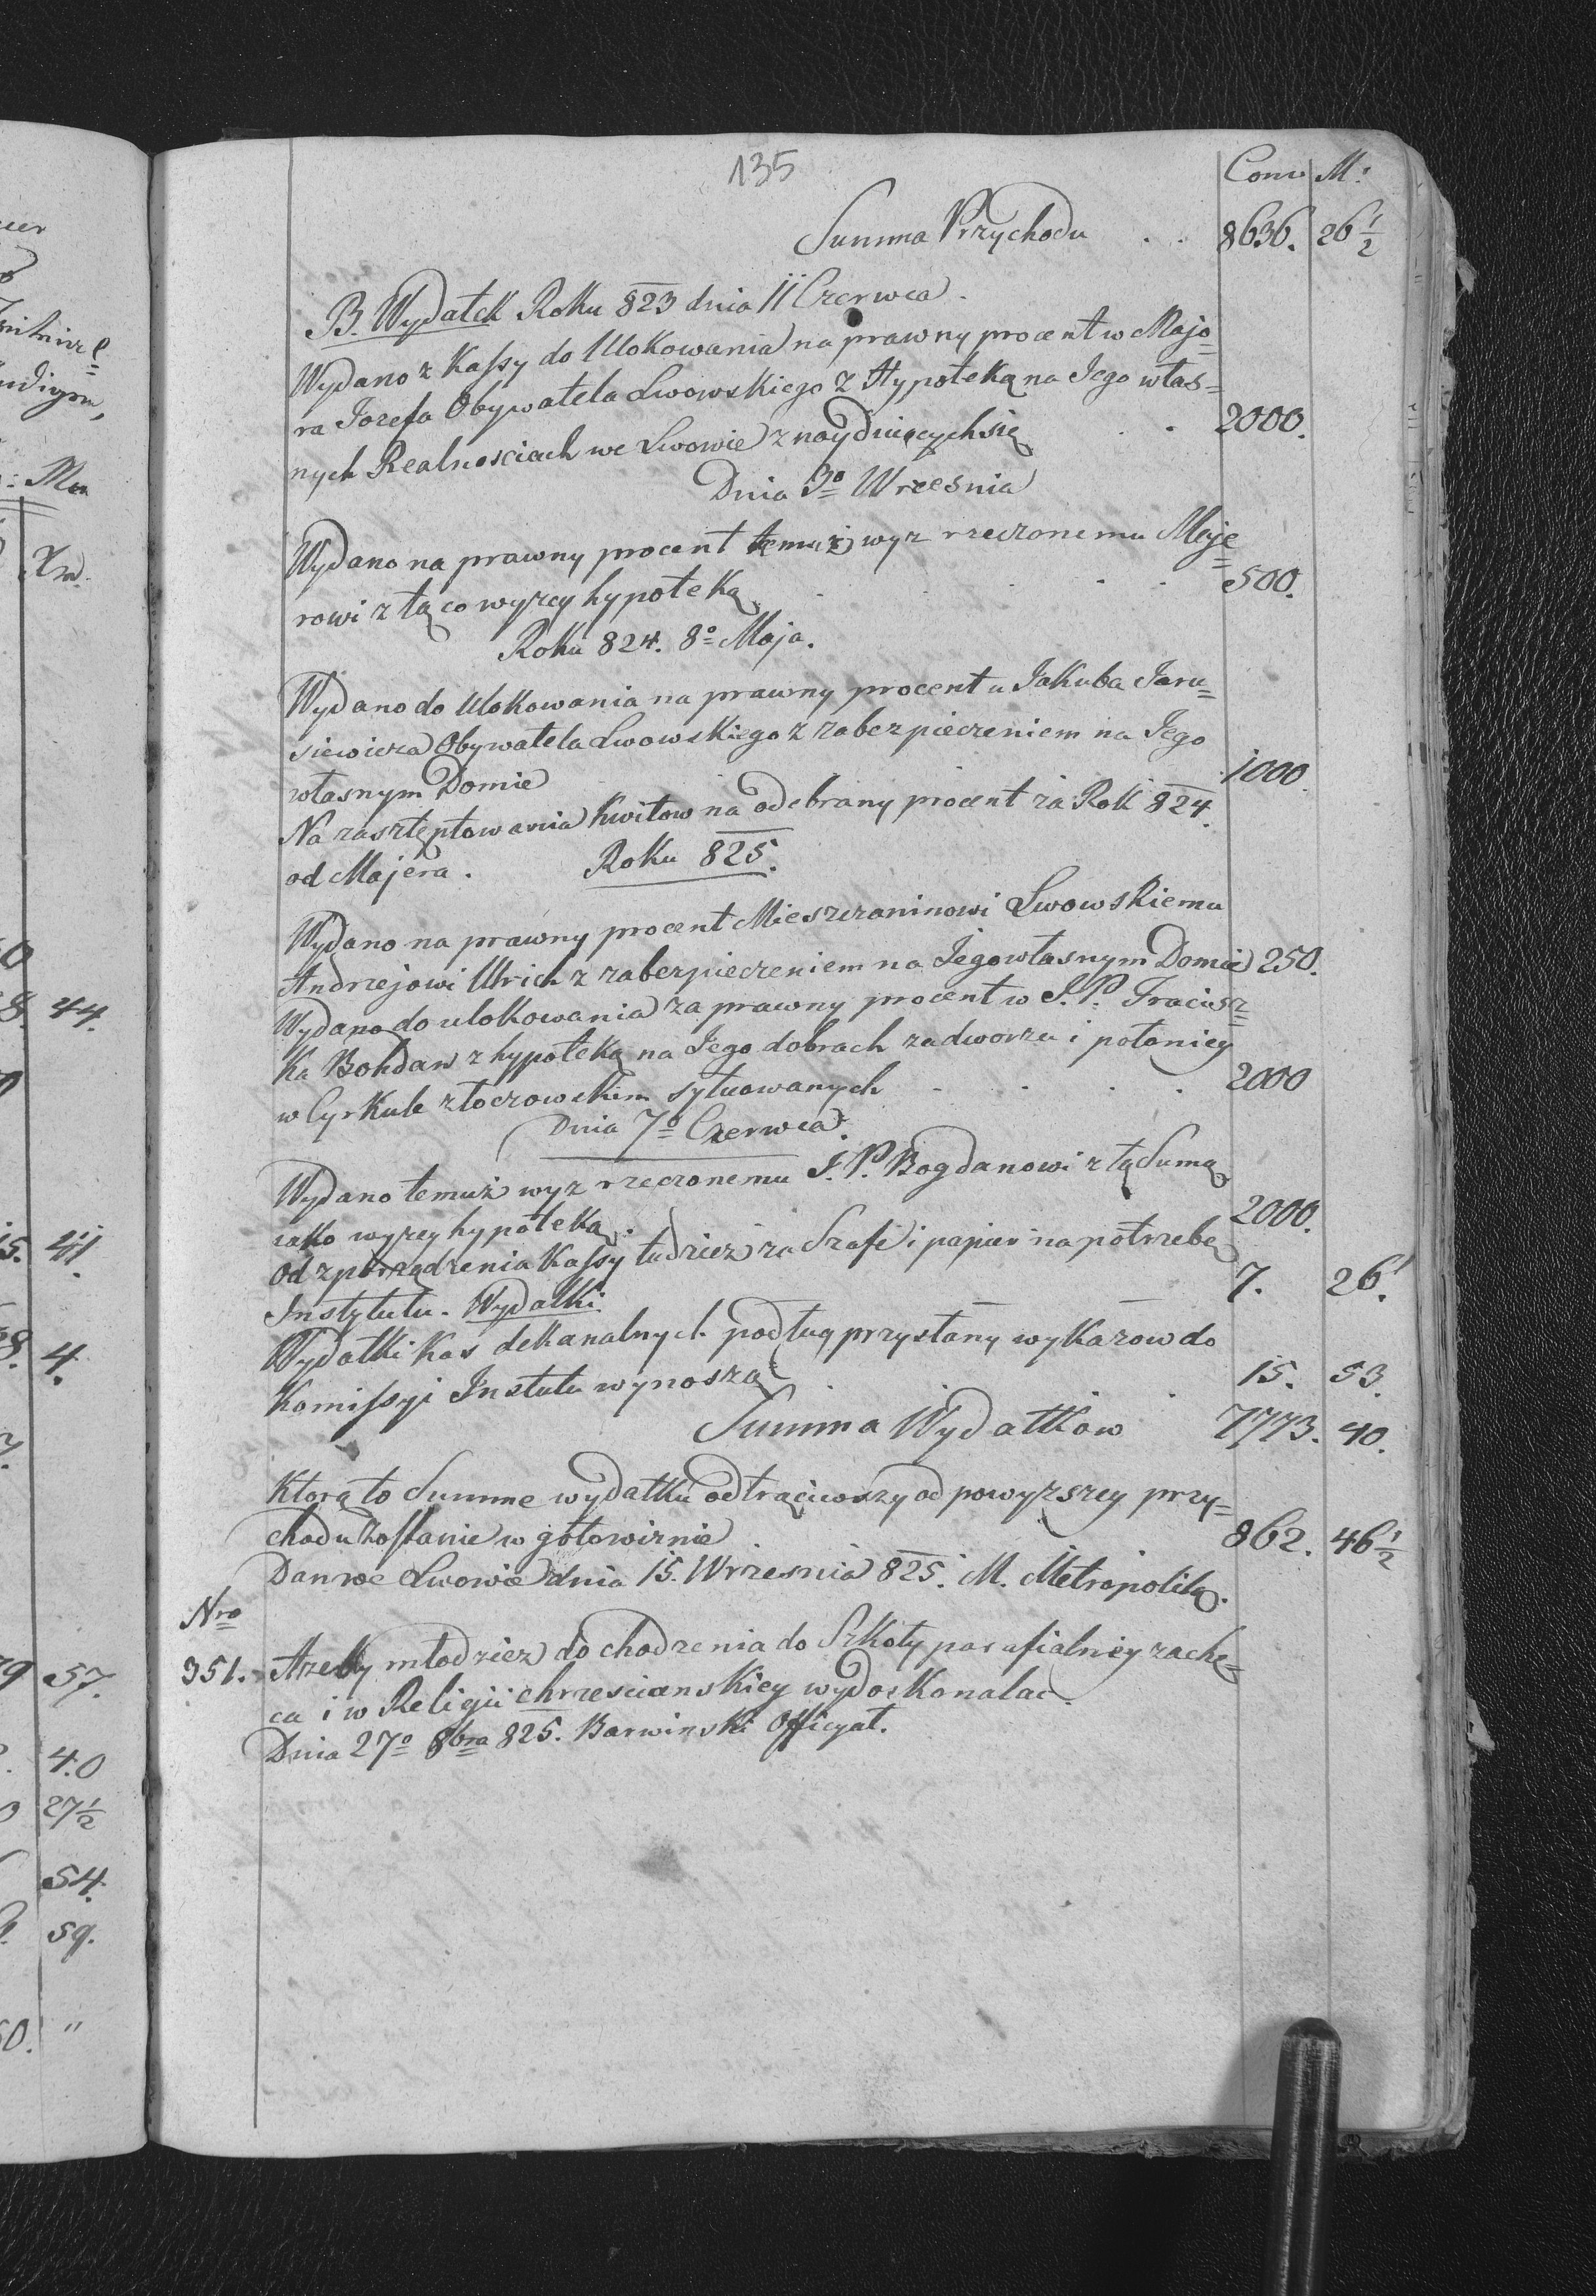 135
Conv M:
Summa Przychodu . . 8636. 26 1/2
B. Wydatek Roku 823 dnia 11 Czerwca.
Wydano z Kassy do Ulokowania na prawny procent w Majo=
ra Jozefa Obywatela Lwowskiego z Hypoteką na Jego włas=
nych Realnosciach we Lwowie znaydujących się . . 2000.
Dnia 3o Wrzesnia
Wydano na prawny procent temuż wyz rzeczonemu Maje=
rowi z tą co wyzey hypoteką . . . . 500.
Roku 824. 8o Maja.
Wydano do Ulokowania na prawny procent u Jakuba Jaru=
siewicza Obywatela Lwowskiego z zabezpieczeniem na Jego
własnym Domie 1000.
Na zasztęplowania Kwitow na odebrany procent za Rok 824.
od Majera. Roku 825.
Wydano na prawny procent Mieszczaninowi Lwowskiemu
Andrzejowi Ulrich z zabezpieczeniem na Jego własnym Domie 250.
Wydano do ulokowania za prawny procent w J. P. Fracisz=
Ka Bohdan z hypoteką na Jego dobrach zadworzu i połoniey
w Cyrkule złoczowskim sytuowanych . . . 2000
Dnia 7o Czerwca.
Wydano temuż wyz rzeczonemu J. P. Bogdanowi z tą Sumą
iako wyzey hypoteką. 2000.
Od zporządzenia Kassy tudziez za Szafe i papier na potrzebę
Instytutu. Wydatki. 7. 26.
Wydatki Kas dekanalnych podług przysłany wykazow do
Komissyi Instutu wynoszą . . . 15. 53.
Summa Wydatkow 7773. 40.
Którą to Summe wydatku odtrąciwszy od powyzszey przy=
chodu zostanie w gotowiznie 862. 46 1/2
Dan we Lwowie dnia 15. Wrzesnia 825. M. Metropolita.
Nro
351. Azeby młodziez do chodzenia do Szkoły parafialney zache=
ca i w Religii chrzescianskiey wydoskonalac.
Dnia 27o 8bra 825. Barwinski Officyał.
44.
41.
4.
57.
40
27 1/2
54.
59.